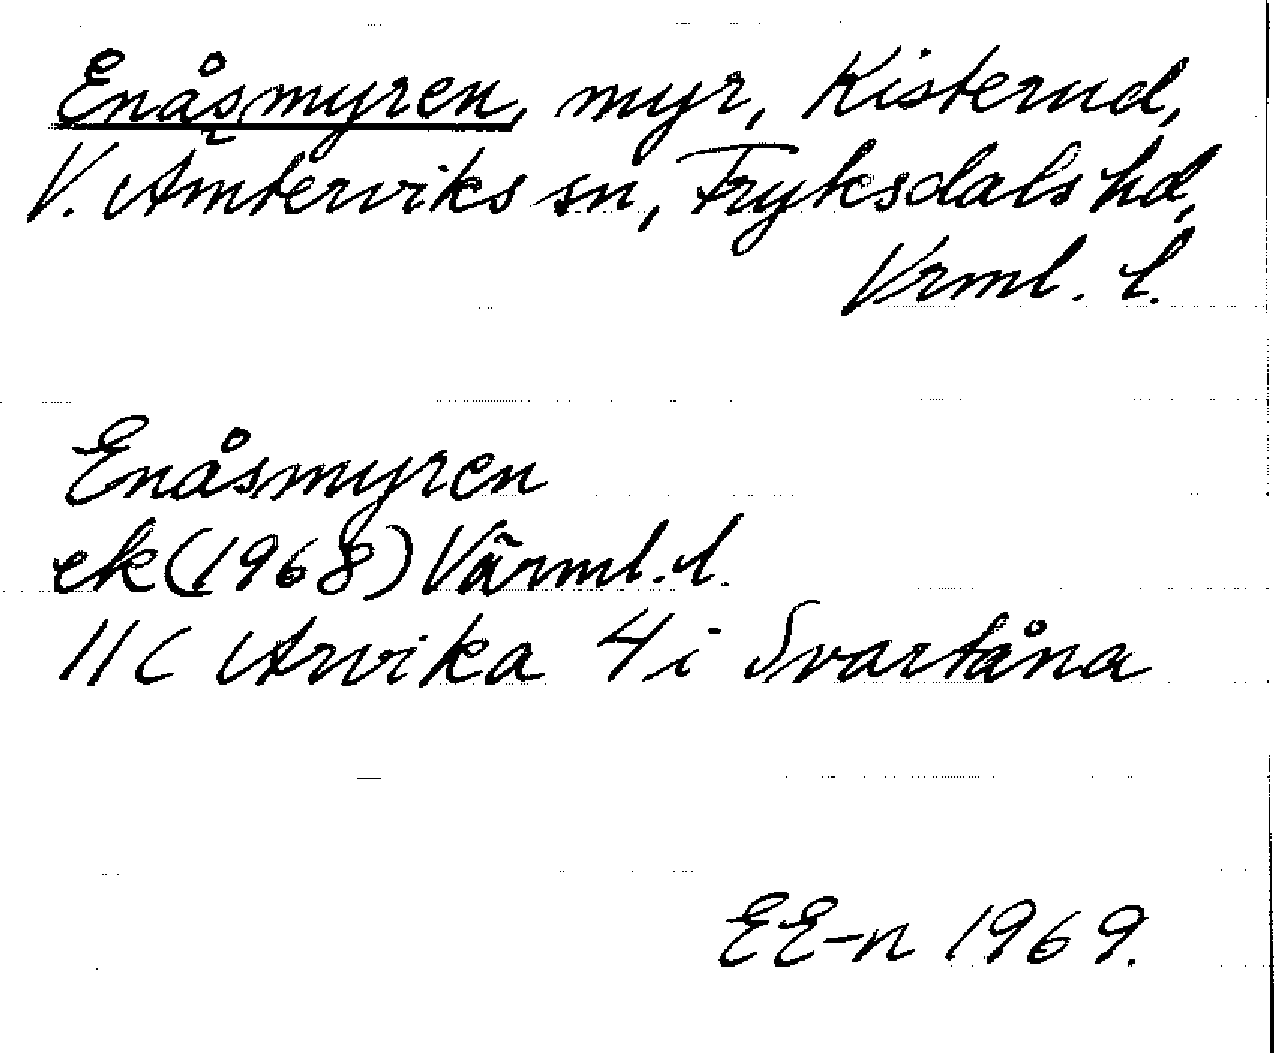 Enåsmyren, myr, Kisterud,
V. Ämterviks sn, Fryksdals hd,
Vrml. l.
Enåsmyren
ek (1968) Värml. l.
11C Arvika 4i Svartåna
EE-n 1969.